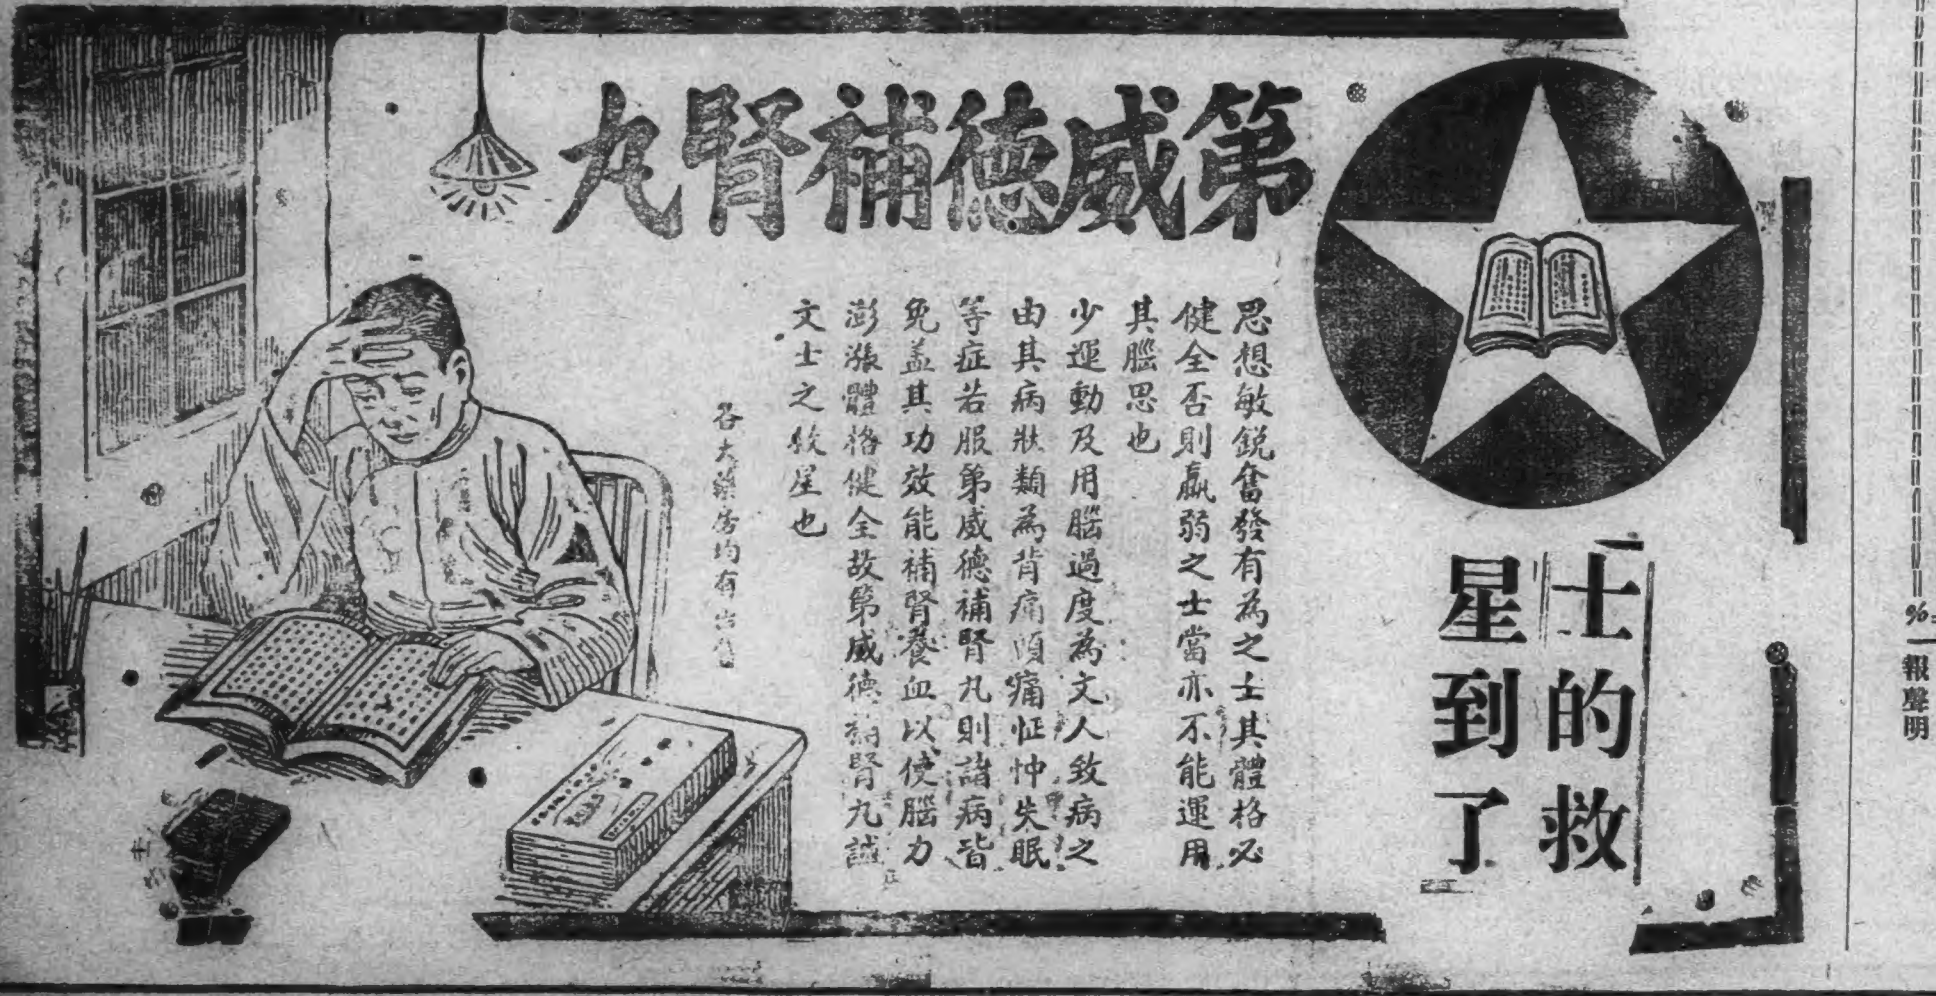 第威德補腎丸
士的救
星到了
思想敏銳奮發有為之士其體格必
健全否則羸弱之士當亦不能運用
其腦思也
少運動及用腦過度為文人致病之
由其病狀類為背痛頭痛怔忡失眠
等症若服第威德補腎丸則諸病皆
免蓋其功效能補腎養血以使腦力
澎漲體格健全故第威德補腎丸誠
文士之救星也
各大藥房均有出售
報聲明